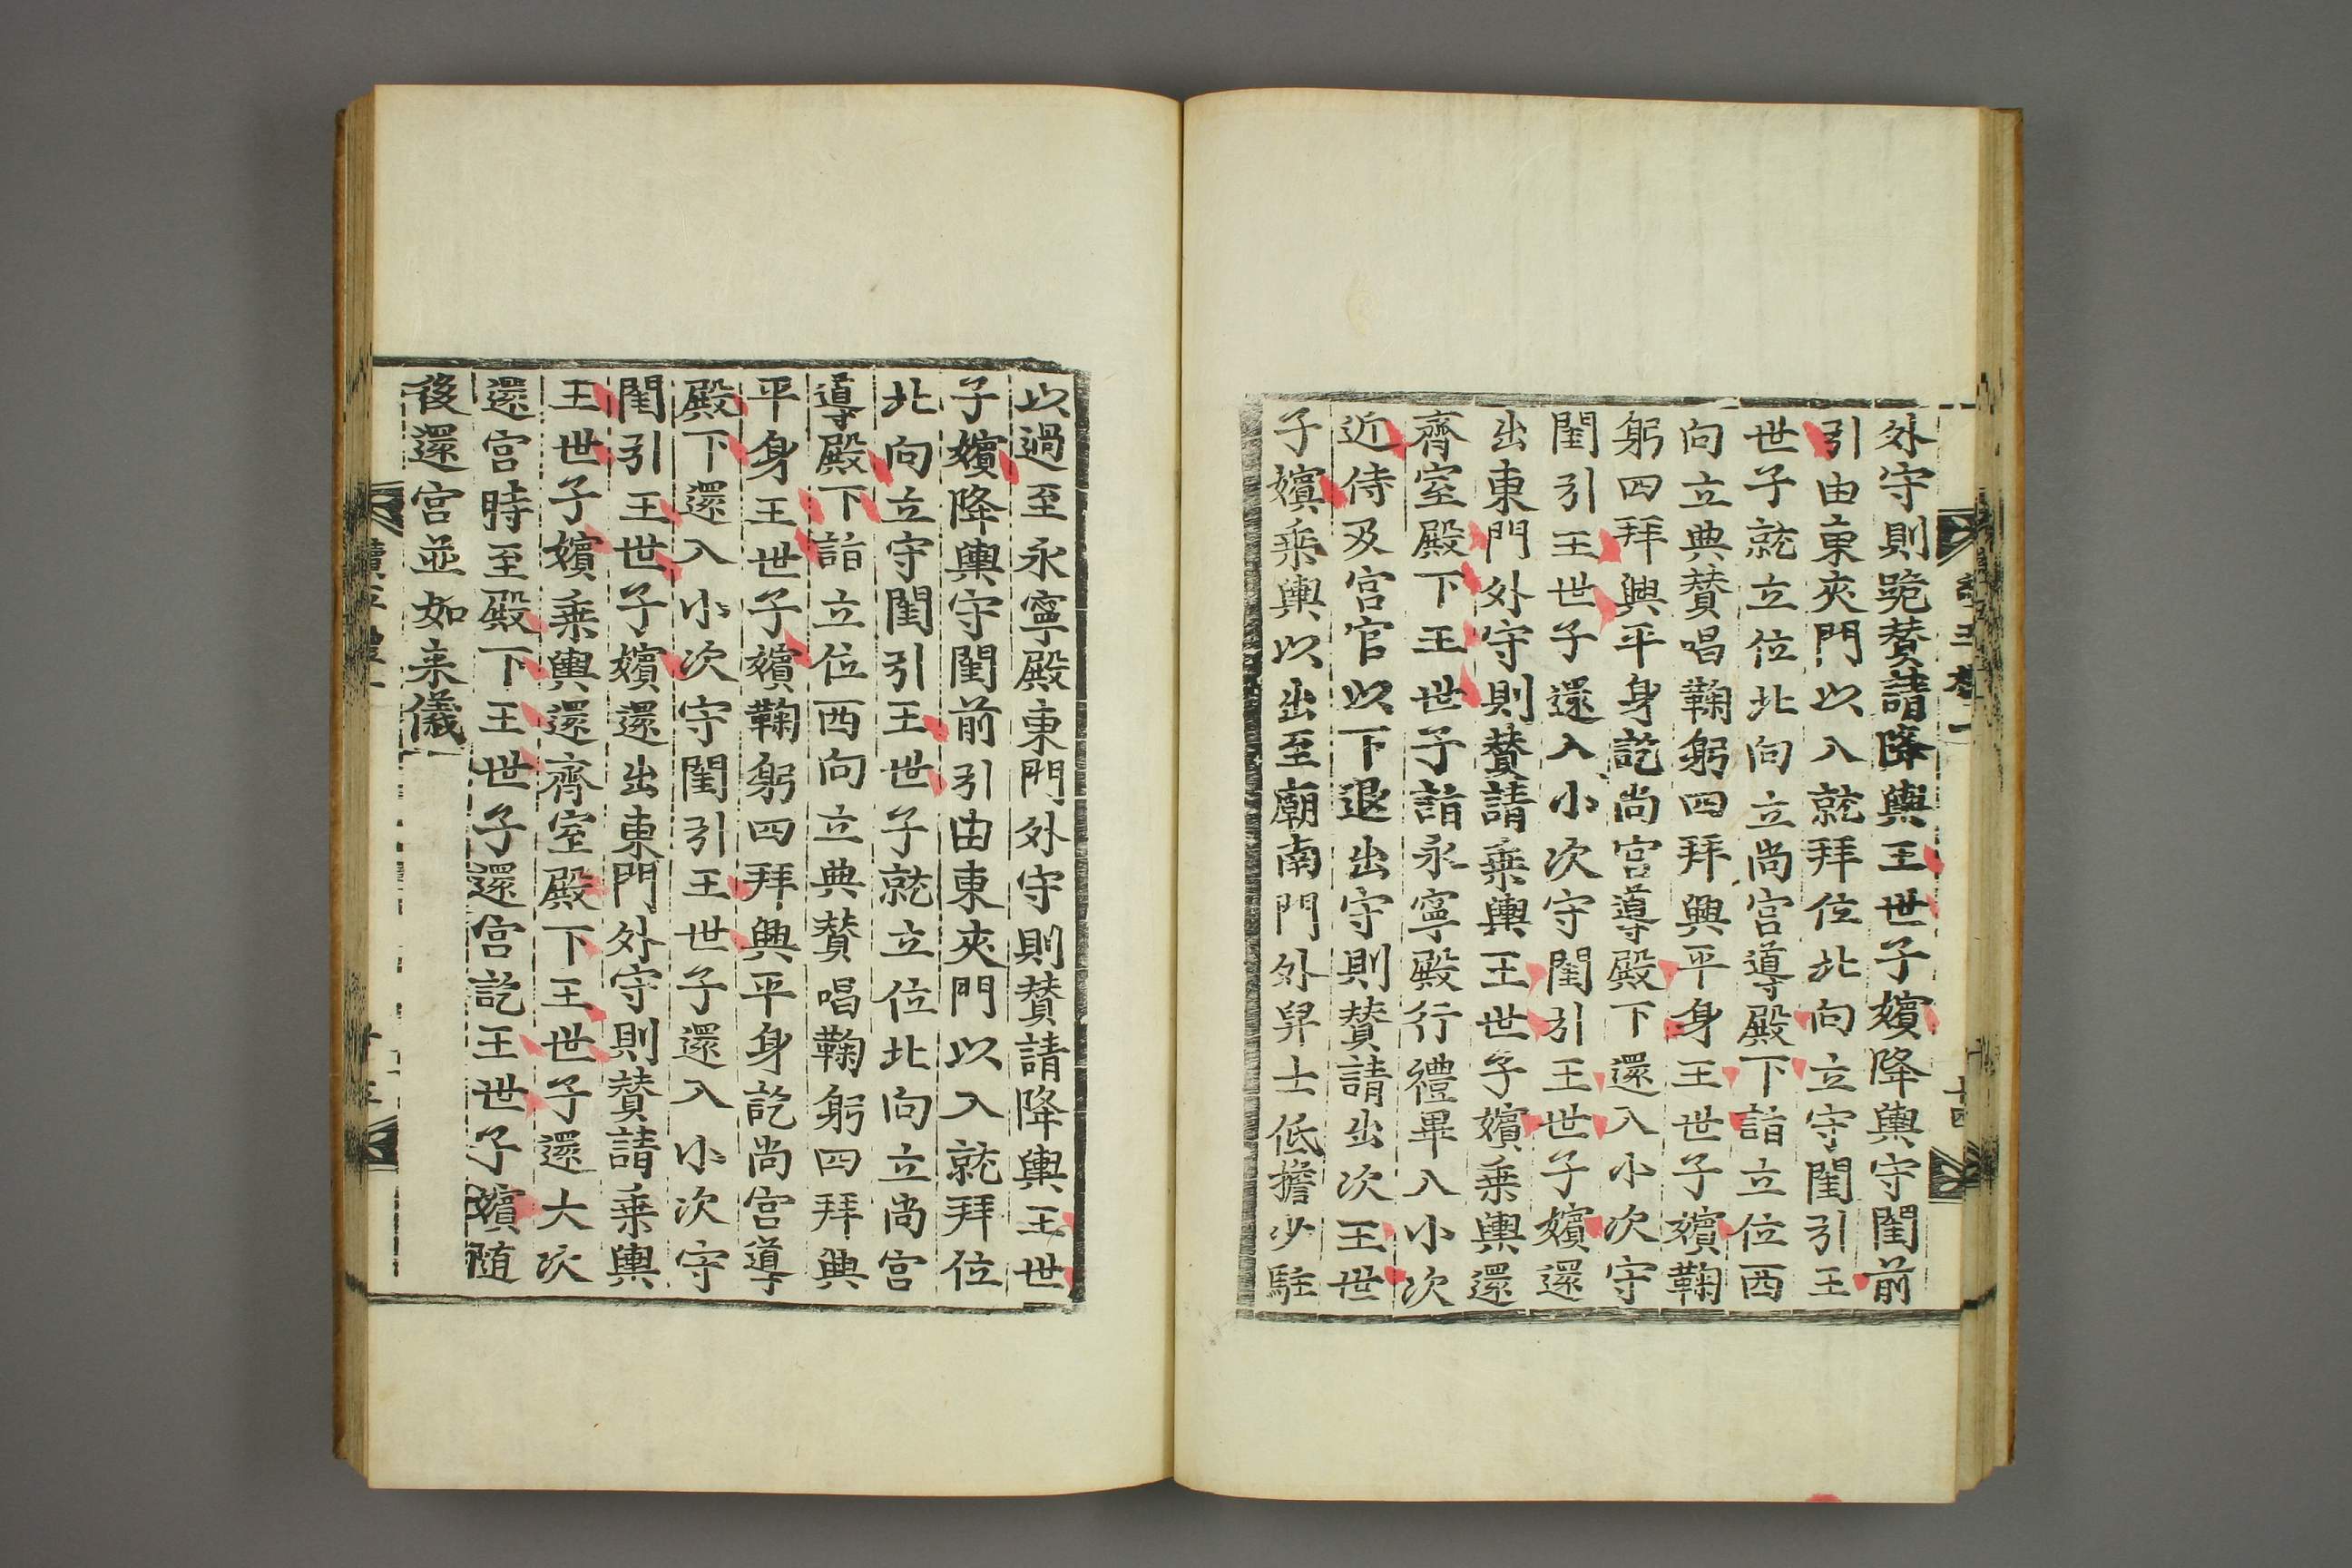 外守則跪贊請降輿王世子嬪降輿守閨前
引由東夾門以入就拜位北向立守閨引王
世子就立位北向立尚宮導殿下詣立位西
向立典贊唱鞠躬四拜興平身王世子嬪鞠
躬四拜興平身訖尚宮導殿下還入小次守
閨引王世子還入小次守閨引王世子嬪還
出東門外守則贊請乘輿王世子嬪乘輿還
齊室殿下王世子詣永寧殿行禮畢入小次
近侍及宮官以下退出守則贊請出次王世
子嬪乘輿以出至廟南門外舁士低擔少駐
十四
以過至永寧殿東門外守則贊請降輿王世
子嬪降輿守閨前引由東夾門以入就拜位
北向立守閨引王世子就立位北向立尚宮
導殿下詣立位西向立典贊唱鞠躬四拜興
平身王世子嬪鞠躬四拜興平身訖尚宮導
殿下還入小次守閨引王世子還入小次守
閨引王世子嬪還出東門外守則贊請乘輿
王世子嬪乘輿還齊室殿下王世子還大次
還宮時至殿下王世子還宮訖王世子嬪随
後還宮並如来儀